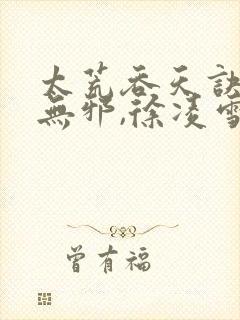 太荒吞天訣
無邪,徐凌雪
曾有福